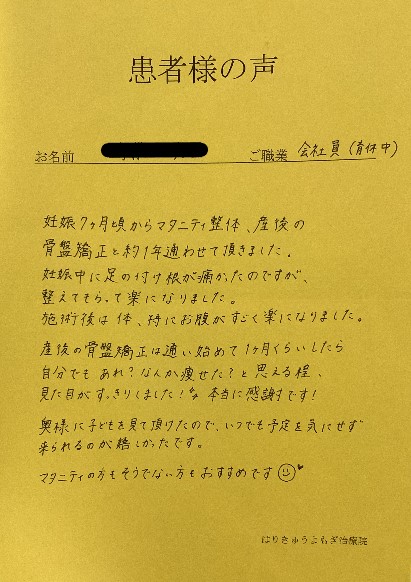 患者様の声
お名前 ご職業 会社員(育休中)
妊娠7ヶ月頃からマタニティ整体、産後の
骨盤矯正と約1年通わせて頂きました。
妊娠中に足の付け根が痛かったのですが、
整えてもらって楽になりました。
施術後は体、特にお腹がすごく楽になりました。
産後の骨盤矯正は通い始めて1ヶ月くらいしたら
自分でもあれ?なんか痩せた?と思える程、
見た目がすっきりしました! 本当に感謝です!
奥様に子どもを見て頂けたので、いつでも予定を気にせず
来られるのが嬉しかったです。
マタニティの方もそうでない方もおすすめです
はりきゅうよもぎ治療院